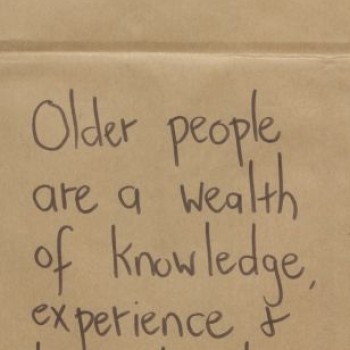 Older people
are a wealth
of knowledge,
experience &